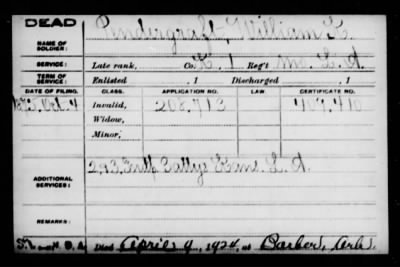 DEAD
NAME OF SOLDIER: Pendergraft, William
SERVICE: Late rank, Co. 1 Reg't Mo. L. A.
TERM OF SERVICE: Enlisted , 1 Discharged , 1
DATE OF FILING. CLASS. APPLICATION NO. LAW. CERTIFICATE NO.
Oct. 4 Invalid, 208.713 407.410
Widow,
Minor,
ADDITIONAL SERVICES:
REMARKS:
Died April 9, 1924, at Barber, Ark.